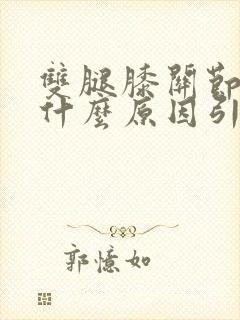 雙腿膝關節
什麼原因引
郭憶如